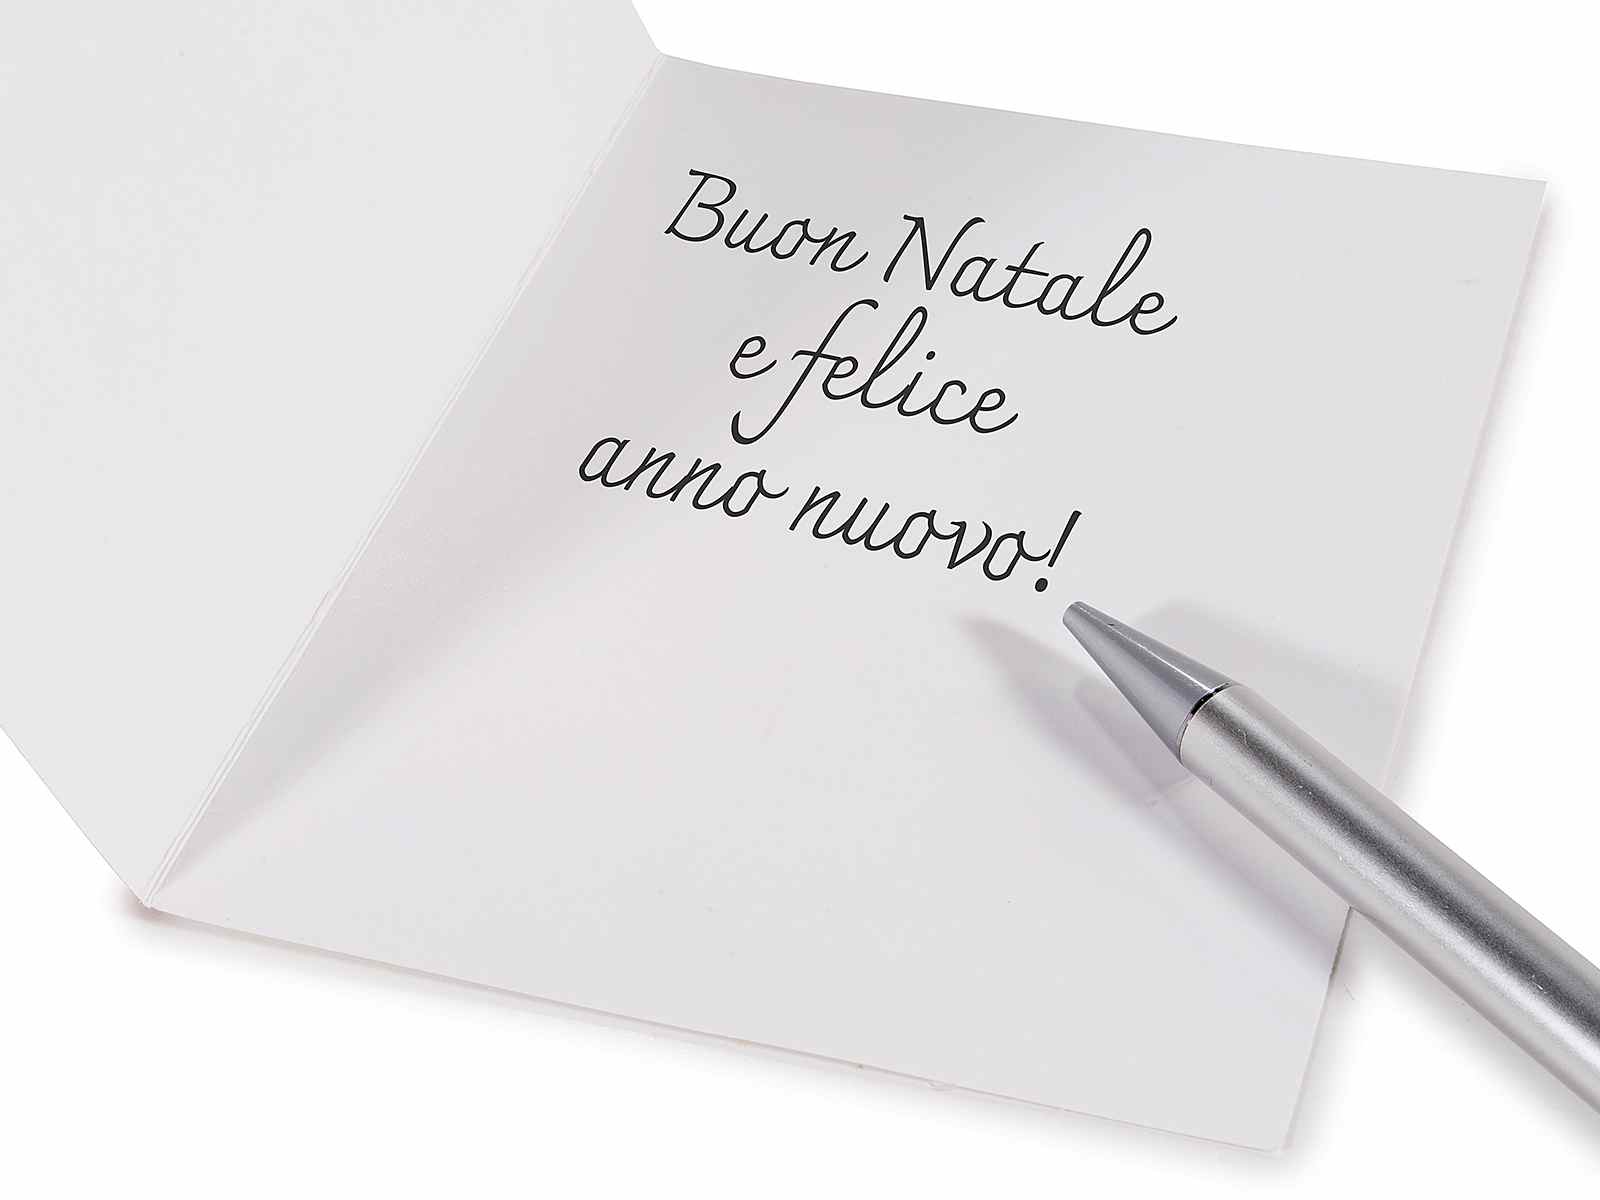 Buon Natale
e felice
anno nuovo!